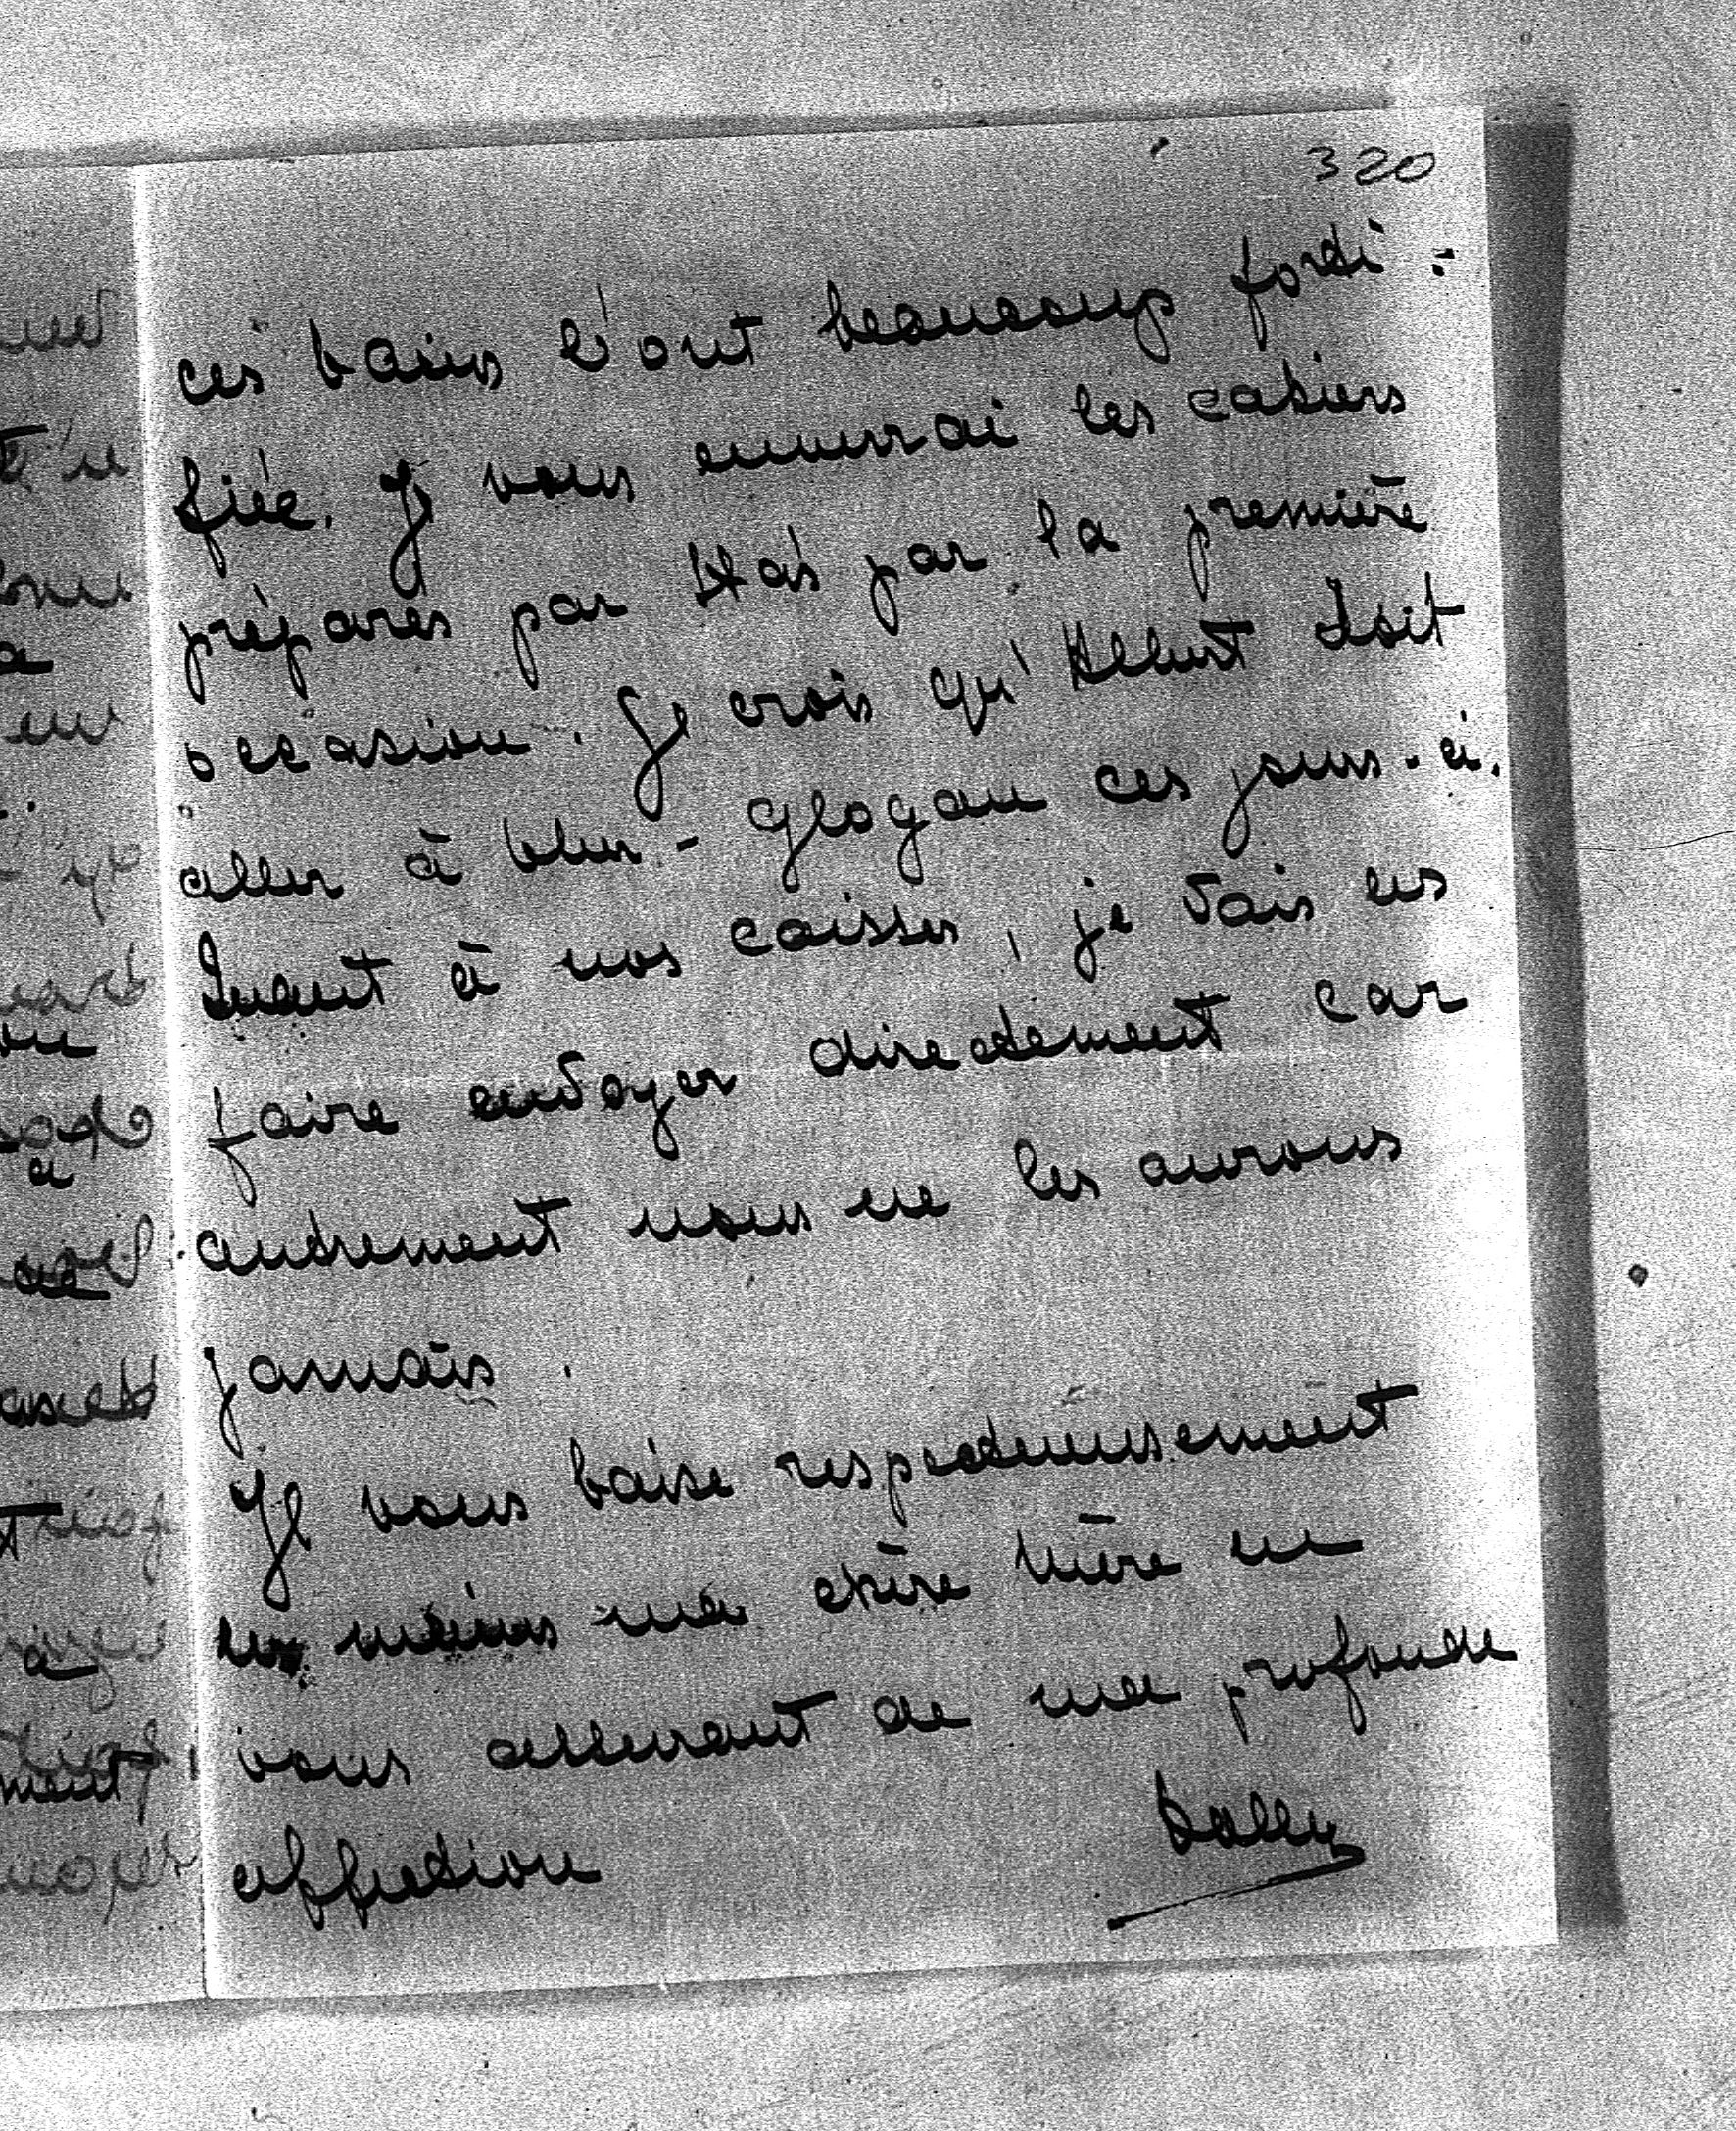 320
ces bains l'ont beaucoup forti-
fiée. Je vous enverrai les cahiers
préparés par Stas par la première
occasion. Je crois qu'Albert doit
aller à Ober-Glogau ces jours-ci.
Quant à nos caisses, je vais les
faire envoyer directement car
autrement nous ne les aurons
jamais.
Je vous baise respectueusement
les mains ma chère Mère en
vous assurant de ma profonde
affection
Dolly